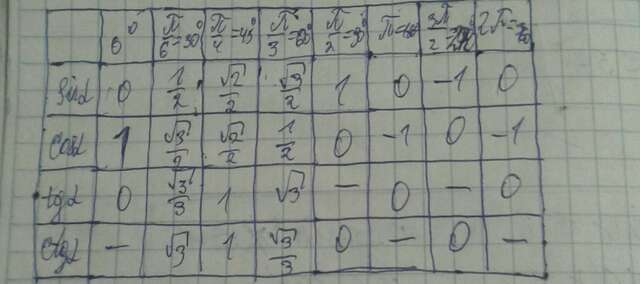 0° π/6=30° π/4=45° π/3=60° π/2=90° π=180° 3π/2=270° 2π=360°
sinα 0 1/2 √2/2 √3/2 1 0 -1 0
cosα 1 √3/2 √2/2 1/2 0 -1 0 -1
tgα 0 √3/3 1 √3 — 0 — 0
ctgα — √3 1 √3/3 0 — 0 —